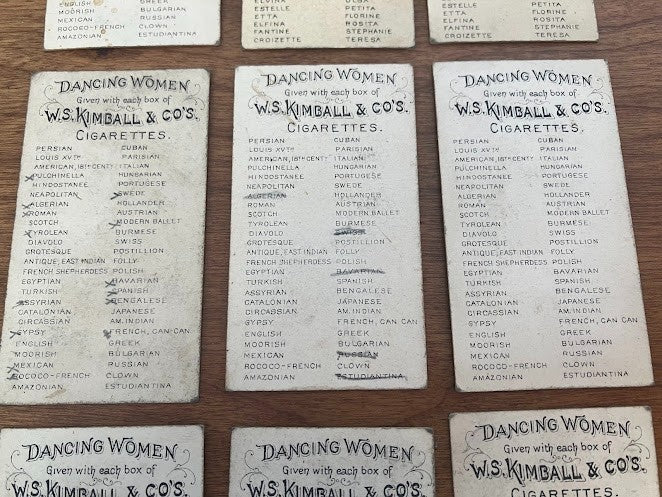 ENGLISH GREEK
MOORISH BULGARIAN
MEXICAN RUSSIAN
ROCOCO-FRENCH CLOWN
AMAZONIAN ESTUDIANTINA
ESTELLE PETITA
ETTA FLORINE
ELFINA ROSITA
FANTINE STEPHANIE
CROIZETTE TERESA
ESTELLE PETITA
ETTA FLORINE
ELFINA ROSITA
FANTINE STEPHANIE
CROIZETTE TERESA
DANCING WOMEN
Given with each box of
W.S. KIMBALL & CO'S.
CIGARETTES.
PERSIAN CUBAN
LOUIS XVTH PARISIAN
AMERICAN, 18TH CENTY ITALIAN
PULCHINELLA HUNGARIAN
HINDOSTANEE PORTUGESE
NEAPOLITAN SWEDE
ALGERIAN HOLLANDER
ROMAN AUSTRIAN
SCOTCH MODERN BALLET
TYROLEAN BURMESE
DIAVOLO SWISS
GROTESQUE POSTILLION
ANTIQUE, EAST INDIAN FOLLY
FRENCH SHEPHERDESS POLISH
EGYPTIAN BAVARIAN
TURKISH SPANISH
ASSYRIAN BENGALESE
CATALONIAN JAPANESE
CIRCASSIAN AM. INDIAN
GYPSY FRENCH, CAN CAN
ENGLISH GREEK
MOORISH BULGARIAN
MEXICAN RUSSIAN
ROCOCO-FRENCH CLOWN
AMAZONIAN ESTUDIANTINA
DANCING WOMEN
Given with each box of
W.S. KIMBALL & CO'S.
CIGARETTES.
PERSIAN CUBAN
LOUIS XVTH PARISIAN
AMERICAN, 18TH CENTY ITALIAN
PULCHINELLA HUNGARIAN
HINDOSTANEE PORTUGESE
NEAPOLITAN SWEDE
ALGERIAN HOLLANDER
ROMAN AUSTRIAN
SCOTCH MODERN BALLET
TYROLEAN BURMESE
DIAVOLO SWISS
GROTESQUE POSTILLION
ANTIQUE, EAST INDIAN FOLLY
FRENCH SHEPHERDESS POLISH
EGYPTIAN BAVARIAN
TURKISH SPANISH
ASSYRIAN BENGALESE
CATALONIAN JAPANESE
CIRCASSIAN AM. INDIAN
GYPSY FRENCH, CAN CAN
ENGLISH GREEK
MOORISH BULGARIAN
MEXICAN RUSSIAN
ROCOCO-FRENCH CLOWN
AMAZONIAN ESTUDIANTINA
DANCING WOMEN
Given with each box of
W.S. KIMBALL & CO'S.
CIGARETTES.
PERSIAN CUBAN
LOUIS XVTH PARISIAN
AMERICAN, 18TH CENTY ITALIAN
PULCHINELLA HUNGARIAN
HINDOSTANEE PORTUGESE
NEAPOLITAN SWEDE
ALGERIAN HOLLANDER
ROMAN AUSTRIAN
SCOTCH MODERN BALLET
TYROLEAN BURMESE
DIAVOLO SWISS
GROTESQUE POSTILLION
ANTIQUE, EAST INDIAN FOLLY
FRENCH SHEPHERDESS POLISH
EGYPTIAN BAVARIAN
TURKISH SPANISH
ASSYRIAN BENGALESE
CATALONIAN JAPANESE
CIRCASSIAN AM. INDIAN
GYPSY FRENCH, CAN CAN
ENGLISH GREEK
MOORISH BULGARIAN
MEXICAN RUSSIAN
ROCOCO-FRENCH CLOWN
AMAZONIAN ESTUDIANTINA
DANCING WOMEN
Given with each box of
W.S. KIMBALL & CO'S.
DANCING WOMEN
Given with each box of
W.S. KIMBALL & CO'S.
DANCING WOMEN
Given with each box of
W.S. KIMBALL & CO'S.
CIGARETTES